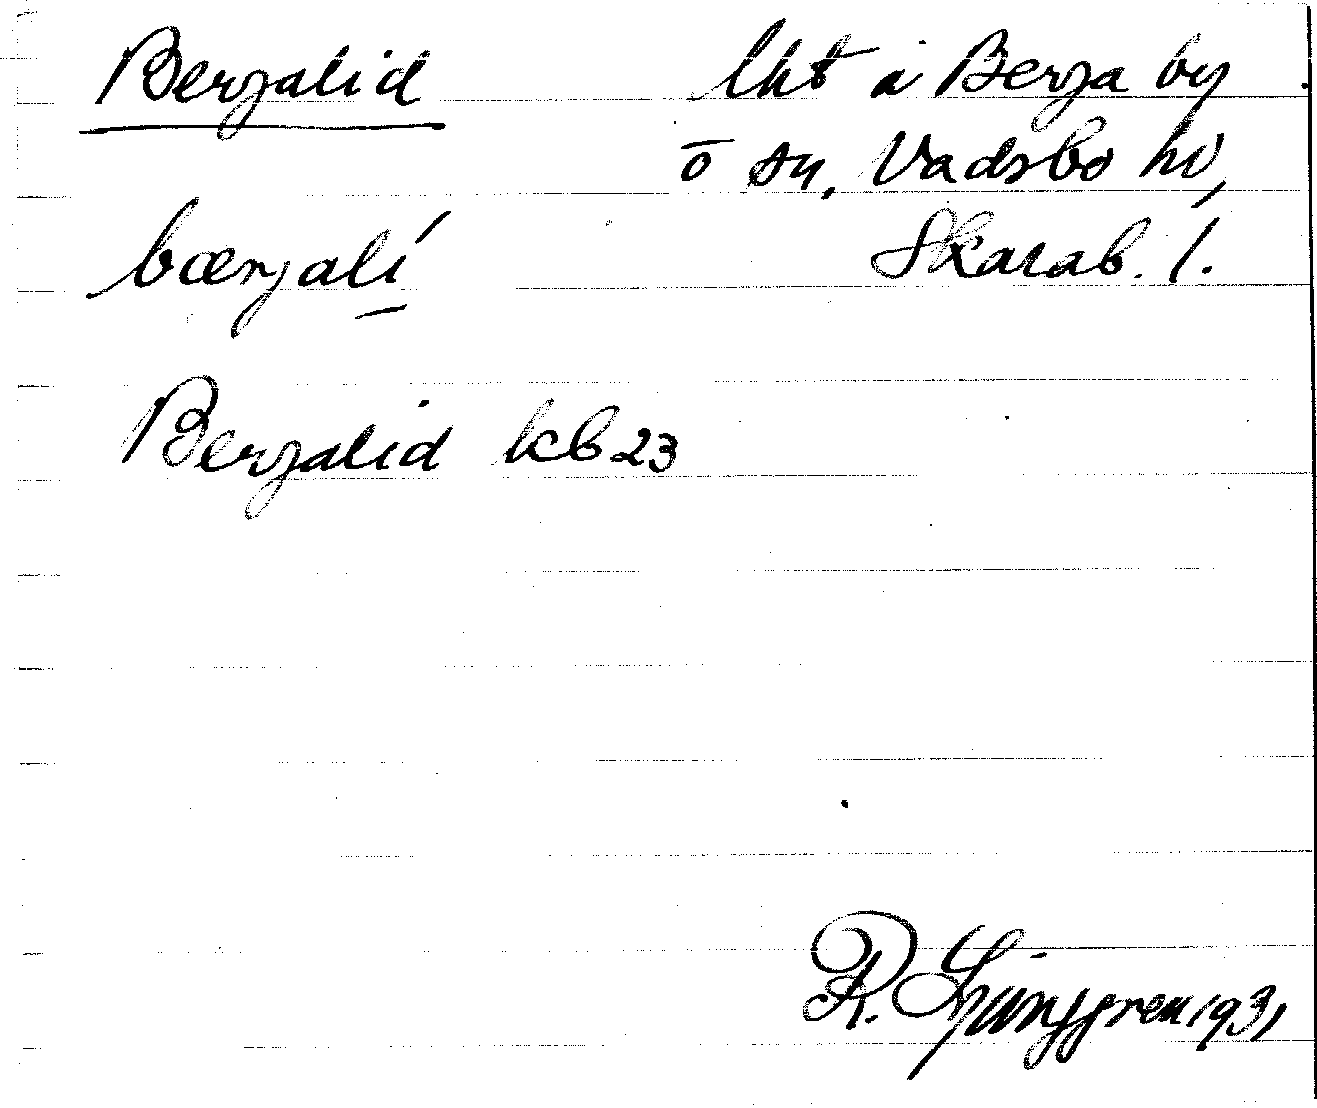 Bergalid lht i Berga by
ō sn, Vadsbo hd,
bærjalí Skarab. l.
Bergalid kb 23
R. Ljunggren 1931